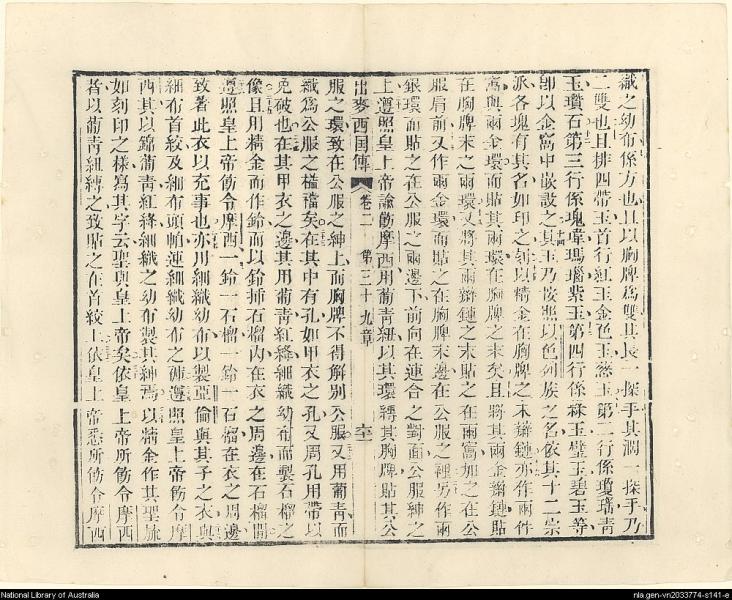 織之幼布係方也且以胸牌為雙其長一探手其濶一探手乃
二雙也且排四帶玉首行紅玉金色玉蒸玉第二行係瓊瑙青
玉瓚石第三行係瑰瑋瑪瑙紫玉第四行係綠玉璧玉碧玉等
即以金窩中嵌設之其玉乃按照以色列族之名依其十二宗
派各塊有其名如印之刻以精金在胸牌之末辮鏈亦作兩件
窩與兩金環而貼其兩環在胸牌之末矣且將其兩金辮鏈貼
在胸牌末之兩環又將其兩辮鏈之末貼之在兩窩加之在公
服肩前又作兩金環而貼之在胸牌末邊在公服之裡另作兩
銀環而貼之在公服之兩邊下前向在連合之對面公服紳之
上遵照皇上帝諭飭摩西用葡青紐以其環縛其胸牌貼其公
出麥西国傳 卷二 第三十九章 六一
服之環致在公服之紳上而胸牌不得解別公服又用葡青而
織為公服之𧝓襠矣在其中有孔如甲衣之孔又周孔用帶以
免破也在其甲衣之邊其用葡青紅絳細織幼布而製石榴之
像且用精金而作鈴而以鈴插石榴內在衣之周邊在石榴間
遵照皇上帝飭令摩西一鈴一石榴一鈴一石榴在衣之周邊
致著此衣以充事也亦用細織幼布以製亞倫與其子之衣與
細布首絞及細布頭帕連細織幼布之褲遵照皇上帝飭令摩
西其以錦葡青紅絳細織之幼布製其紳焉以精金作其聖旒
如刻印之樣寫其字云聖與皇上帝矣依皇上帝所飭令摩西
者以葡青紐縛之致貼之在首絞上依皇上帝悉所飭令摩西
National Library of Australia
nla.gen-vn2033774-s141-e